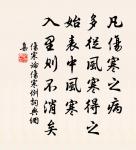 凡傷寒之病
多從風寒得之
始表中風寒
入里則不消矣
傷寒論傷寒例詞典網
集